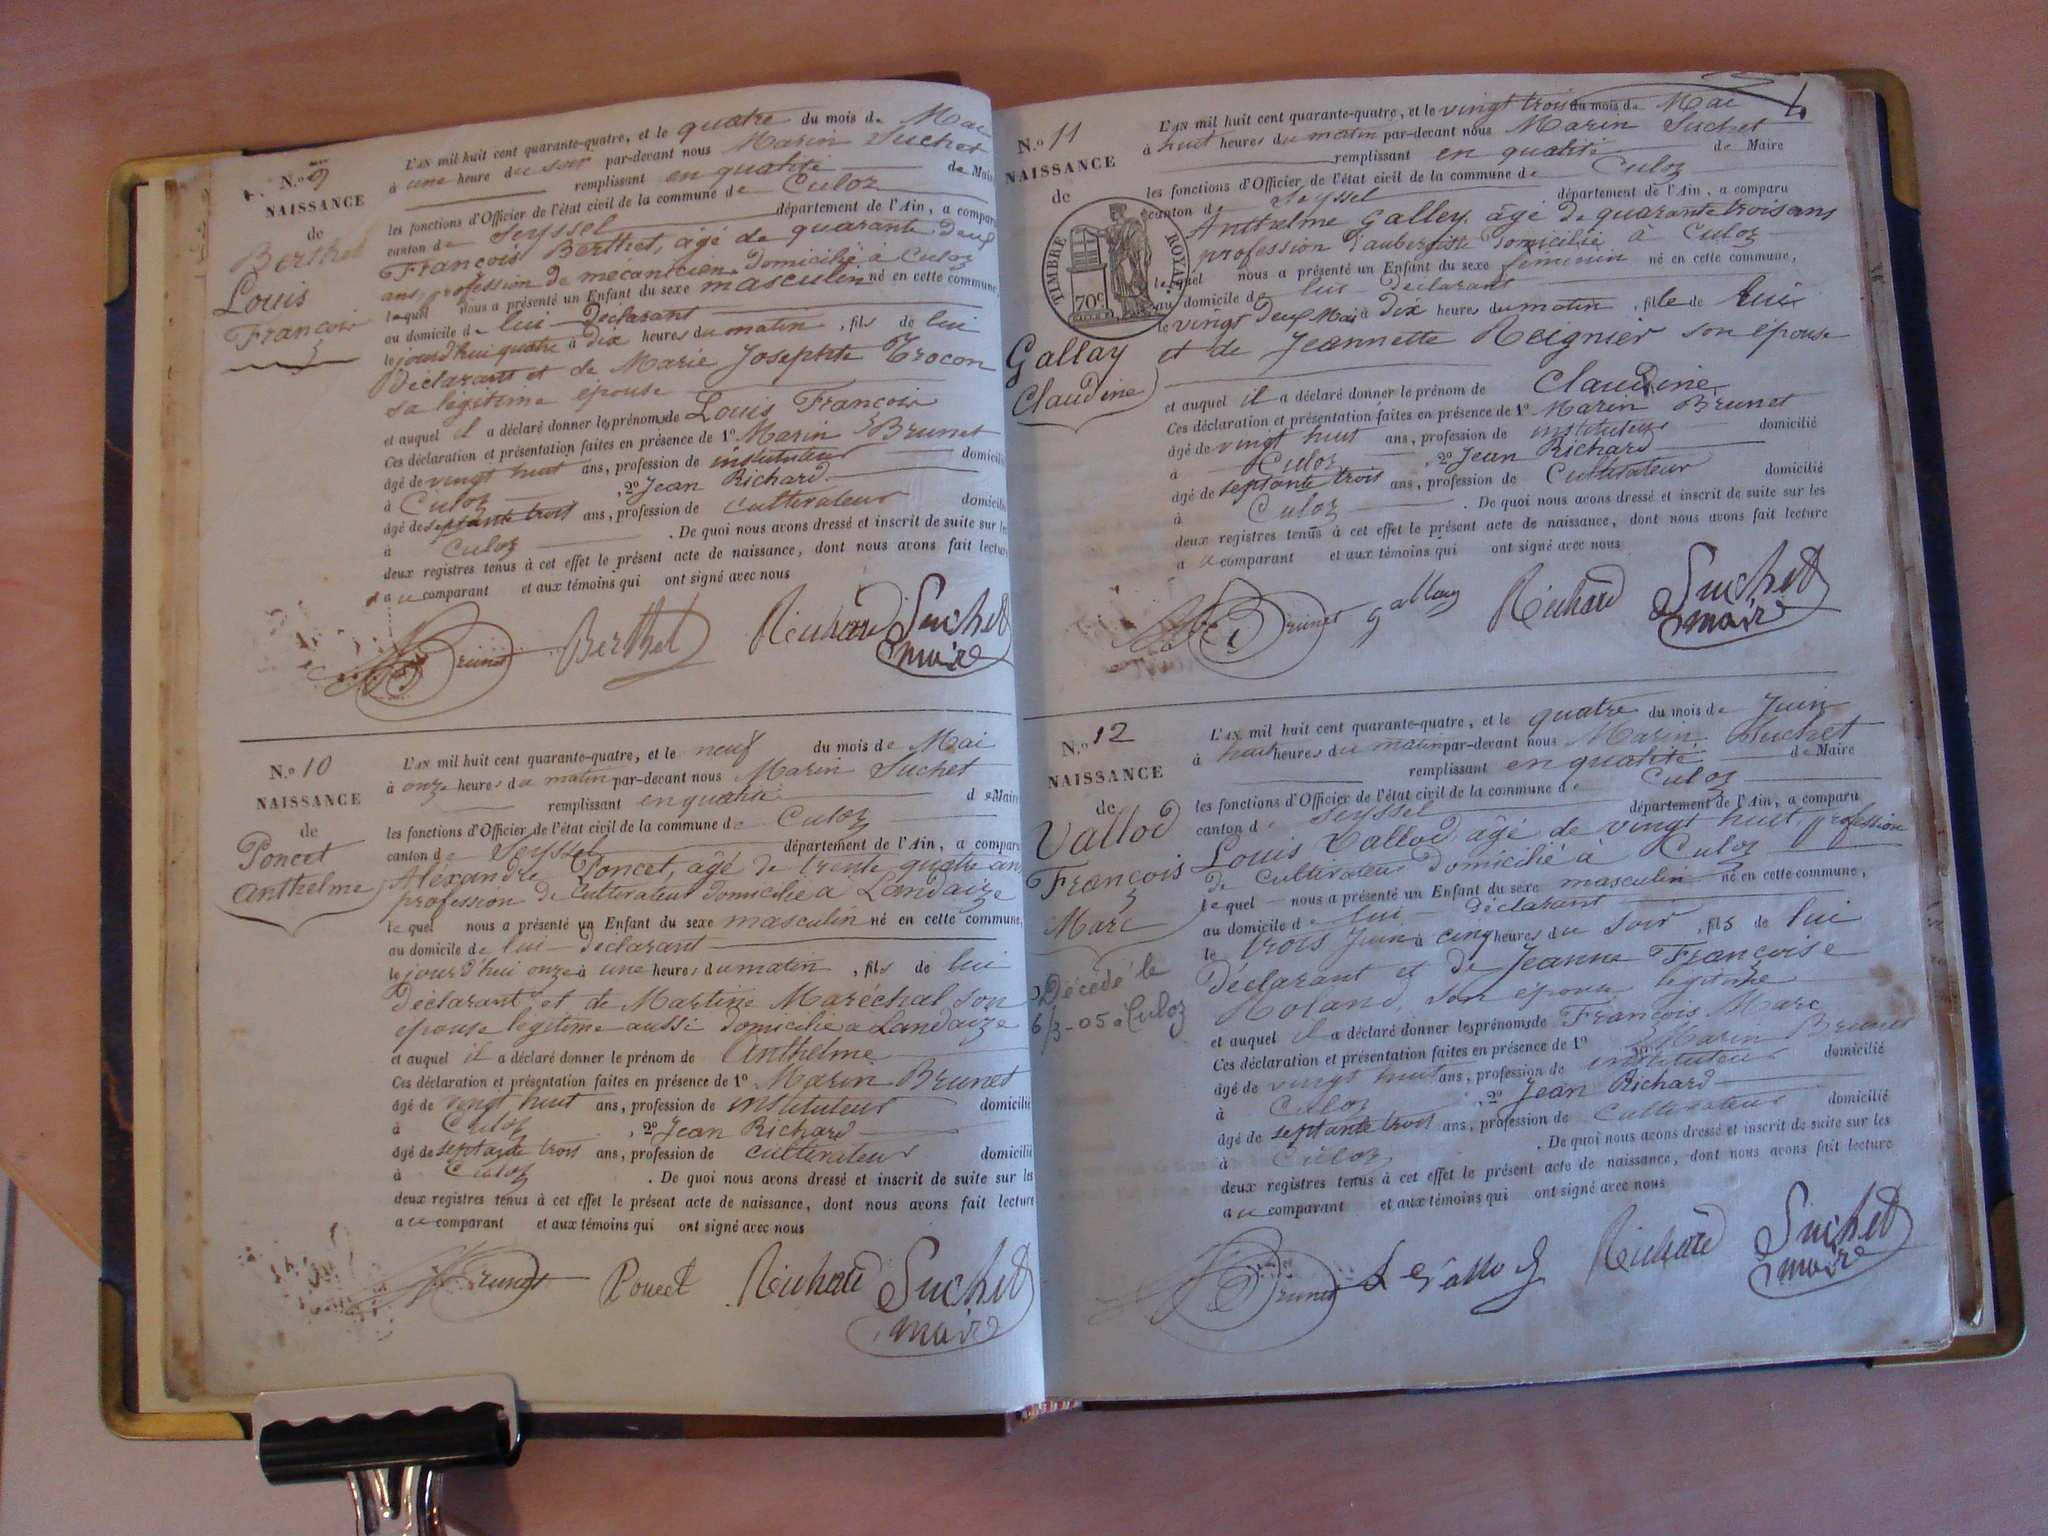 N.o 9
NAISSANCE
de
Berthet
Louis
François
L'AN mil huit cent quarante-quatre, et le quatre du mois de Mai
à une heure du soir par-devant nous Marin Suchet
remplissant en qualité de Maire
les fonctions d'Officier de l'état civil de la commune de Culoz
canton de Seyssel département de l'Ain, a comparu
François Berthet, âgé de quarante deux
ans, profession de mécanicien domicilié à Culoz
lequel nous a présenté un Enfant du sexe masculin né en cette commune,
au domicile de lui déclarant
le jourd'hui quatre à dix heures du matin, fils de lui
Déclarant et de Marie Josephte Trocon
sa légitime épouse
et auquel il a déclaré donner les prénoms de Louis François
Ces déclaration et présentation faites en présence de 1º Marin Brunet
âgé de vingt huit ans, profession de instituteur domicilié
à Culoz, 2º Jean Richard
âgé de septante trois ans, profession de cultivateur domicilié
à Culoz. De quoi nous avons dressé et inscrit de suite sur les
deux registres tenus à cet effet le présent acte de naissance, dont nous avons fait lecture
au comparant et aux témoins qui ont signé avec nous
Brunet Berthet Richard Suchet
maire
N.o 10
NAISSANCE
de
Poncet
Anthelme
L'AN mil huit cent quarante-quatre, et le neuf du mois de Mai
à onze heures du matin par-devant nous Marin Suchet
remplissant en qualité de Maire
les fonctions d'Officier de l'état civil de la commune de Culoz
canton de Seyssel département de l'Ain, a comparu
Alexandre Poncet, âgé de trente quatre ans
profession de Cultivateur domicilié a Landaize
lequel nous a présenté un Enfant du sexe masculin né en cette commune,
au domicile de lui déclarant
le jourd'hui onze à une heures du matin, fils de lui
Déclarant et de Martine Maréchal son
épouse légitime aussi domicilié a Landaize
et auquel il a déclaré donner le prénom de Anthelme
Ces déclaration et présentation faites en présence de 1º Marin Brunet
âgé de vingt huit ans, profession de instituteur domicilié
à Culoz, 2º Jean Richard
âgé de septante trois ans, profession de cultivateur domicilié
à Culoz. De quoi nous avons dressé et inscrit de suite sur les
deux registres tenus à cet effet le présent acte de naissance, dont nous avons fait lecture
au comparant et aux témoins qui ont signé avec nous
Brunet Poncet Richard Suchet
maire
N.o 11
NAISSANCE
de
TIMBRE ROYAL
70c
Gallay
Claudine
L'AN mil huit cent quarante-quatre, et le vingt trois du mois de Mai
à huit heures du matin par-devant nous Marin Suchet
remplissant en qualité de Maire
les fonctions d'Officier de l'état civil de la commune de Culoz
canton de Seyssel département de l'Ain, a comparu
Anthelme Galley, âgé de quarante trois ans
profession d'aubergiste domicilié à Culoz
lequel nous a présenté un Enfant du sexe féminin né en cette commune,
au domicile de lui déclarant
le vingt deux Mai à dix heures du matin, fille de lui
et de Jeannette Reignier son épouse
et auquel il a déclaré donner le prénom de Claudine
Ces déclaration et présentation faites en présence de 1º Marin Brunet
âgé de vingt huit ans, profession de instituteur domicilié
à Culoz, 2º Jean Richard
âgé de septante trois ans, profession de Cultivateur domicilié
à Culoz. De quoi nous avons dressé et inscrit de suite sur les
deux registres tenus à cet effet le présent acte de naissance, dont nous avons fait lecture
au comparant et aux témoins qui ont signé avec nous
Brunet gallay Richard Suchet
maire
N.o 12
NAISSANCE
de
Vallod
François
Marc
Décédé le
6/3-05 à Culoz
L'AN mil huit cent quarante-quatre, et le quatre du mois de Juin
à huit heures du matin par-devant nous Marin Suchet
remplissant en qualité de Maire
les fonctions d'Officier de l'état civil de la commune de Culoz
canton de Seyssel département de l'Ain, a comparu
Louis Vallod âgé de vingt huit profession
de Cultivateur domicilié à Culoz
lequel nous a présenté un Enfant du sexe masculin né en cette commune,
au domicile de lui déclarant
le trois Juin à cinq heures du soir, fils de lui
déclarant et de Jeanne Françoise
Roland, son épouse légitime
et auquel il a déclaré donner les prénoms de François Marc
Ces déclaration et présentation faites en présence de 1º Marin Brunet
âgé de vingt huit ans, profession de instituteur domicilié
à Culoz, 2º Jean Richard
âgé de septante trois ans, profession de Cultivateur domicilié
à Culoz. De quoi nous avons dressé et inscrit de suite sur les
deux registres tenus à cet effet le présent acte de naissance, dont nous avons fait lecture
au comparant et aux témoins qui ont signé avec nous
Brunet Richard Suchet
maire